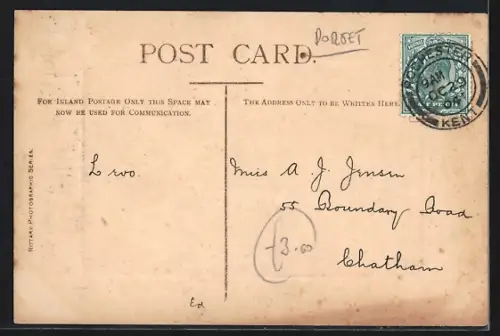 DORSET
POST CARD.
FOR INLAND POSTAGE ONLY THIS SPACE MAY
NOW BE USED FOR COMMUNICATION.
THE ADDRESS ONLY TO BE WRITTEN HERE.
ROCHESTER
9 AM
OC 2
KENT
ROTARY PHOTOGRAPHIC SERIES.
Miss A. J. Jensen
55 Boundary Road
Chatham
£3.00
Ed